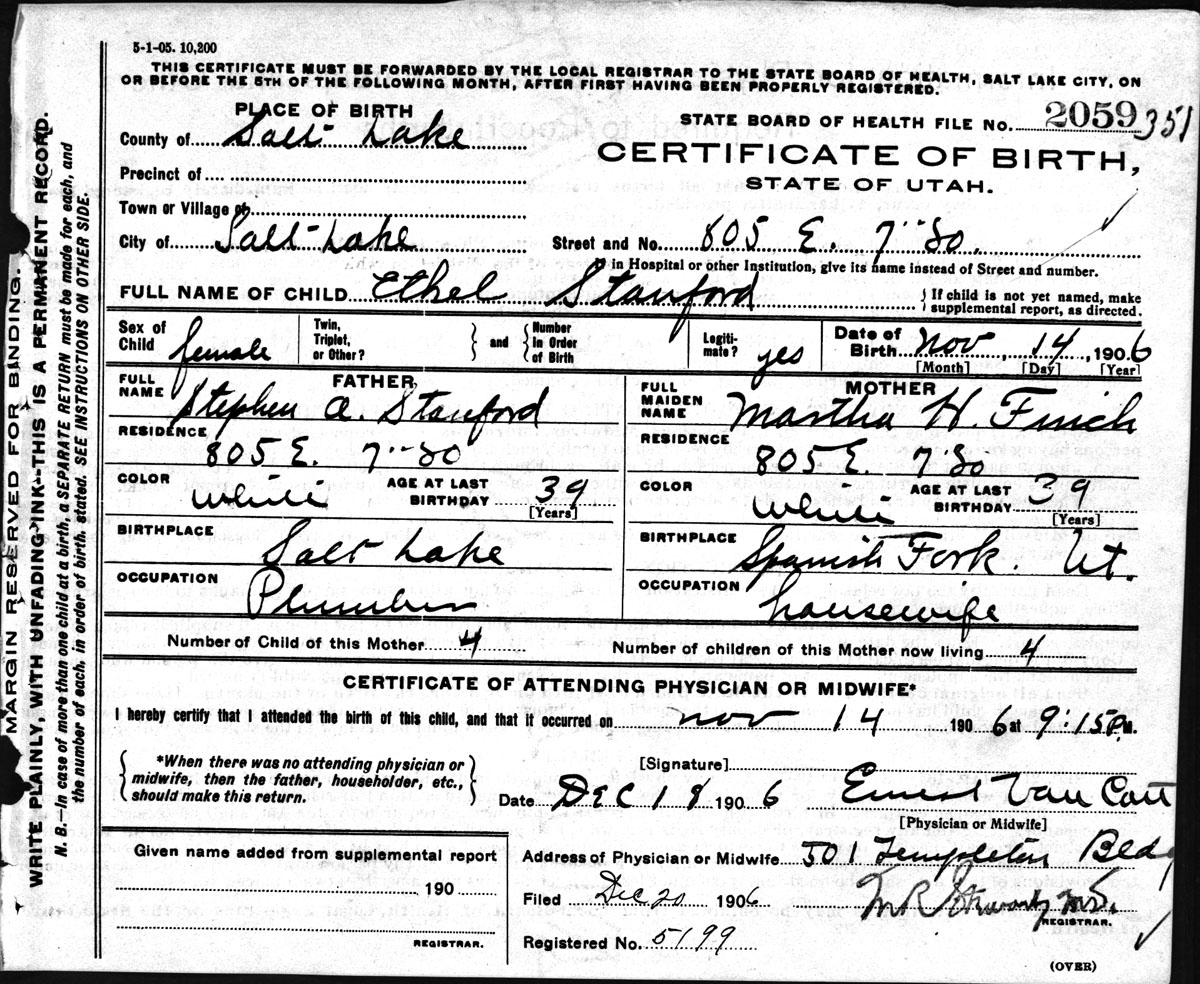 5-1-05. 10,200
THIS CERTIFICATE MUST BE FORWARDED BY THE LOCAL REGISTRAR TO THE STATE BOARD OF HEALTH, SALT LAKE CITY, ON
OR BEFORE THE 5TH OF THE FOLLOWING MONTH, AFTER FIRST HAVING BEEN PROPERLY REGISTERED.
PLACE OF BIRTH
STATE BOARD OF HEALTH FILE No. 2059 351
County of Salt Lake
CERTIFICATE OF BIRTH,
STATE OF UTAH.
Precinct of
Town or Village of
City of Salt Lake Street and No. 805 E. 7" So.
If in Hospital or other Institution, give its name instead of Street and number.
FULL NAME OF CHILD Ethel Stanford { If child is not yet named, make
supplemental report, as directed.
Sex of Child female Twin, Triplet, or Other? } and { Number in Order of Birth Legiti-mate? yes Date of Birth Nov, 14, 1906
[Month] [Day] [Year]
FATHER
FULL NAME Stephen A. Stanford
RESIDENCE
805 E. 7" So
COLOR White AGE AT LAST BIRTHDAY 39
[Years]
BIRTHPLACE
Salt Lake
OCCUPATION
Plumber
MOTHER
FULL MAIDEN NAME Martha H. Finch
RESIDENCE
805 E. 7" So
COLOR White AGE AT LAST BIRTHDAY 39
[Years]
BIRTHPLACE
Spanish Fork. Ut.
OCCUPATION
housewife
Number of Child of this Mother 4 Number of children of this Mother now living 4
CERTIFICATE OF ATTENDING PHYSICIAN OR MIDWIFE*
I hereby certify that I attended the birth of this child, and that it occurred on Nov 14 1906 at 9:15 P.M.
*When there was no attending physician or
midwife, then the father, householder, etc.,
should make this return.
[Signature]
Date DEC 18 1906 Ernest Van Cott
[Physician or Midwife]
Given name added from supplemental report
190
REGISTRAR.
Address of Physician or Midwife 501 Templeton Bldg
Filed Dec 20 1906
REGISTRAR.
Registered No. 5199
(OVER)
MARGIN RESERVED FOR BINDING.
WRITE PLAINLY WITH UNFADING INK--THIS IS A PERMANENT RECORD.
N. B.--In case of more than one child at a birth, a SEPARATE RETURN must be made for each, and
the number of each, in order of birth, stated. SEE INSTRUCTIONS ON OTHER SIDE.